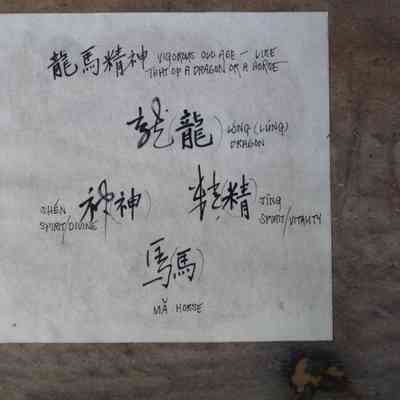 龍馬精神 VIGOROUS OLD AGE — LIKE
THAT OF A DRAGON OR A HORSE
龍(龍) LÓNG (LÚNG)
DRAGON
SHÉN
SPIRIT/DIVINE
神(神)
精(精) JĪNG
SPIRIT/VITALITY
馬(馬)
MǍ HORSE